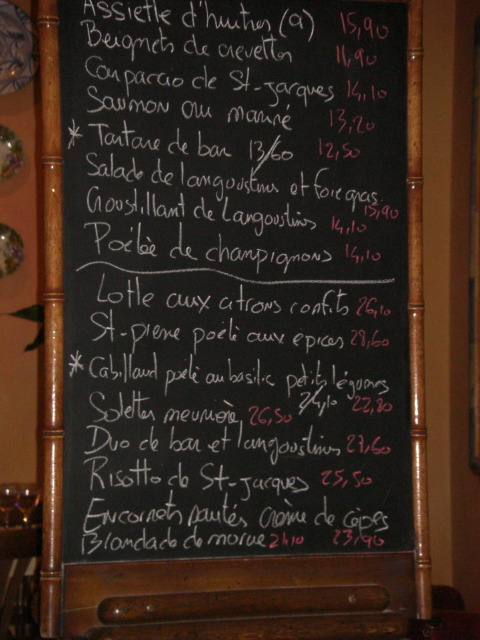 Assiette d'huitres (9) 15,90
Beignets de crevettes 11,90
Carpaccio de St-jacques 14,10
Saumon cru mariné 13,20
* Tartare de bar 13/60 12,50
Salade de langoustines et foie gras 15,90
Croustillant de Langoustines 14,10
Poêlée de champignons 14,10
Lotte aux citrons confits 26,10
St-pierre poêlé aux epices 28,60
* Cabillaud poêlé au basilic petits légumes
Solettes meunière 26,50 24,10 22,80
Duo de bar et langoustines 27,60
Risotto de St-jacques 25,50
Encornets sautés crème de cèpes
Brandade de morue 21,10 23,90